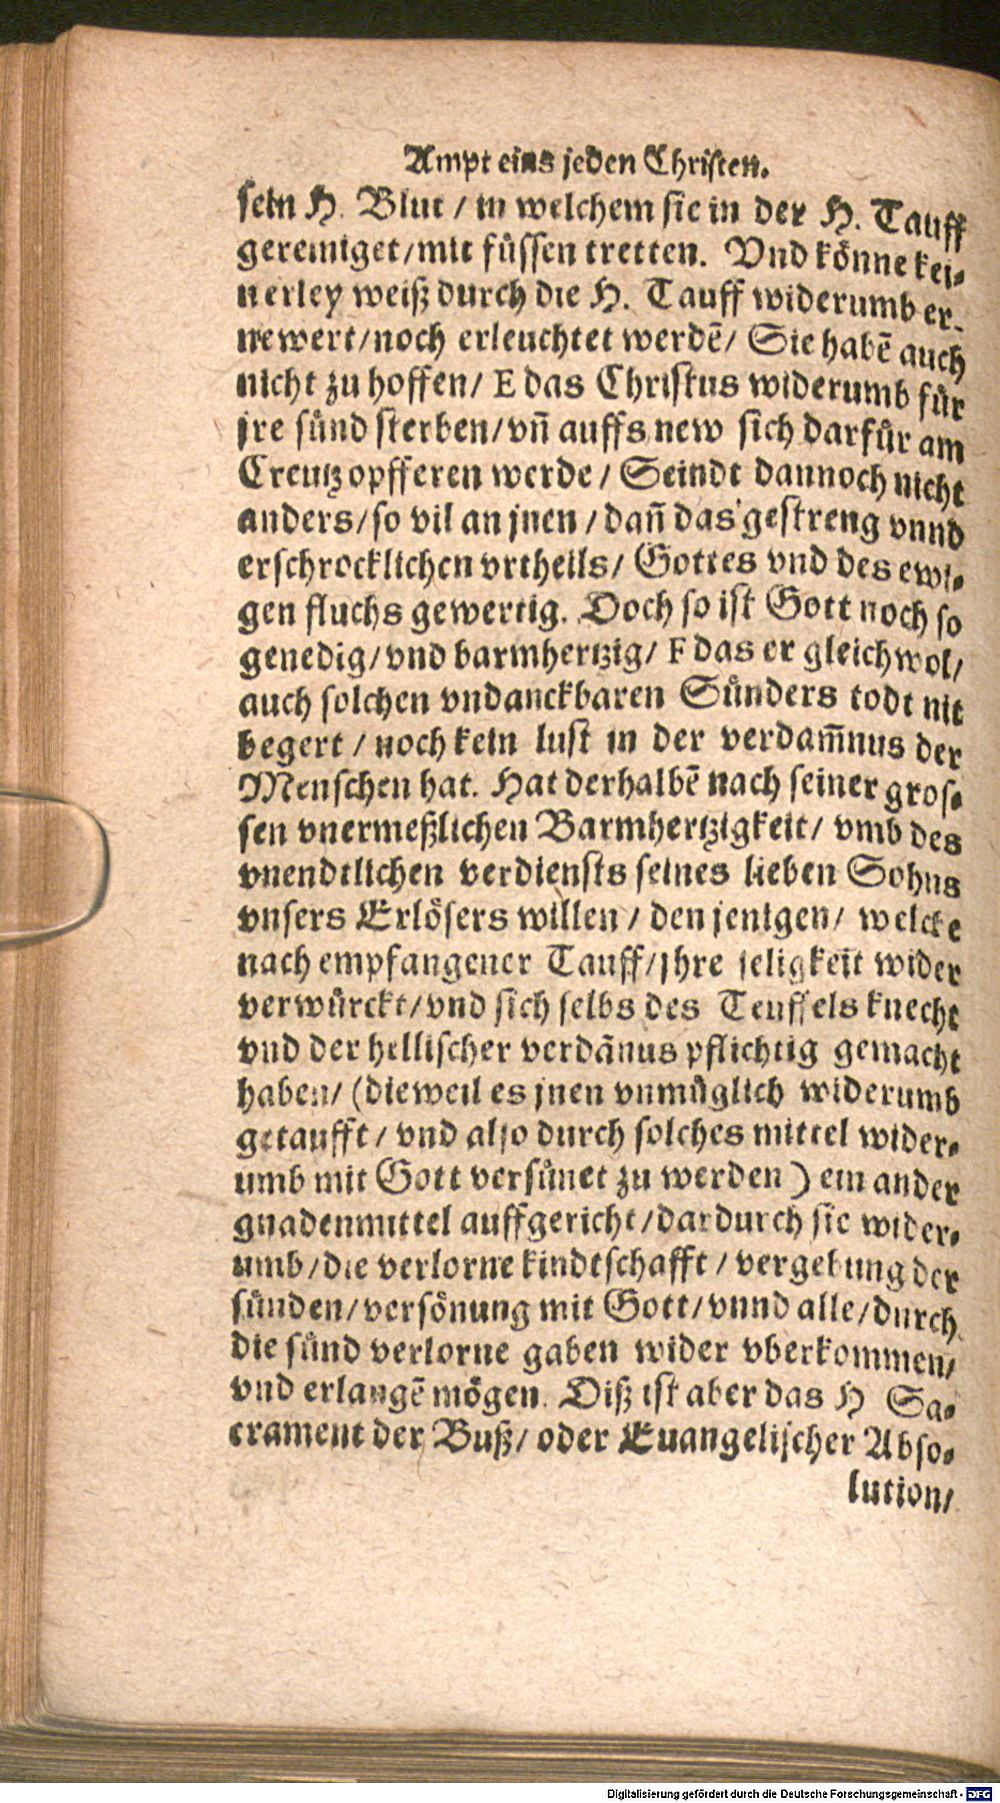 Ampt eins jeden Christen.
sein H. Blut / in welchem sie in der H. Tauff
gereiniget/mit füssen tretten. Vnd könne kei-
nerley weiß durch die H. Tauff widerumb er-
newert/noch erleuchtet werdē/ Sie habē auch
nicht zu hoffen/ E das Christus widerumb für
jre sünd sterben/vñ auffs new sich darfür am
Creutz opfferen werde / Seindt dannoch nicht
anders/so vil an jnen / dañ das gestreng vnnd
erschrocklichen vrtheils/ Gottes vnd des ewi-
gen fluchs gewertig. Doch so ist Gott noch so
genedig/vnd barmhertzig/ F das er gleichwol/
auch solchen vndanckbaren Sünders todt nit
begert / noch kein lust in der verdam̄nus der
Menschen hat. Hat derhalbē nach seiner gros-
sen vnermeßlichen Barmhertzigkeit/ vmb des
vnendtlichen verdiensts seines lieben Sohns
vnsers Erlösers willen / den jenigen/ welche
nach empfangener Tauff/jhre seligkeit wider
verwürckt/vnd sich selbs des Teuffels knecht
vnd der hellischer verdānus pflichtig gemacht
haben/ (dieweil es jnen vnmüglich widerumb
getaufft / vnd also durch solches mittel wider-
umb mit Gott versünet zu werden ) ein ander
gnadenmittel auffgericht/dardurch sie wider-
umb/die verlorne kindtschafft / vergebung der
sünden/versönung mit Gott/vnnd alle/durch
die sünd verlorne gaben wider vberkommen/
vnd erlangē mögen. Diß ist aber das H Sa-
crament der Buß/ oder Euangelischer Abso-
lution/
Digitalisierung gefördert durch die Deutsche Forschungsgemeinschaft - DFG